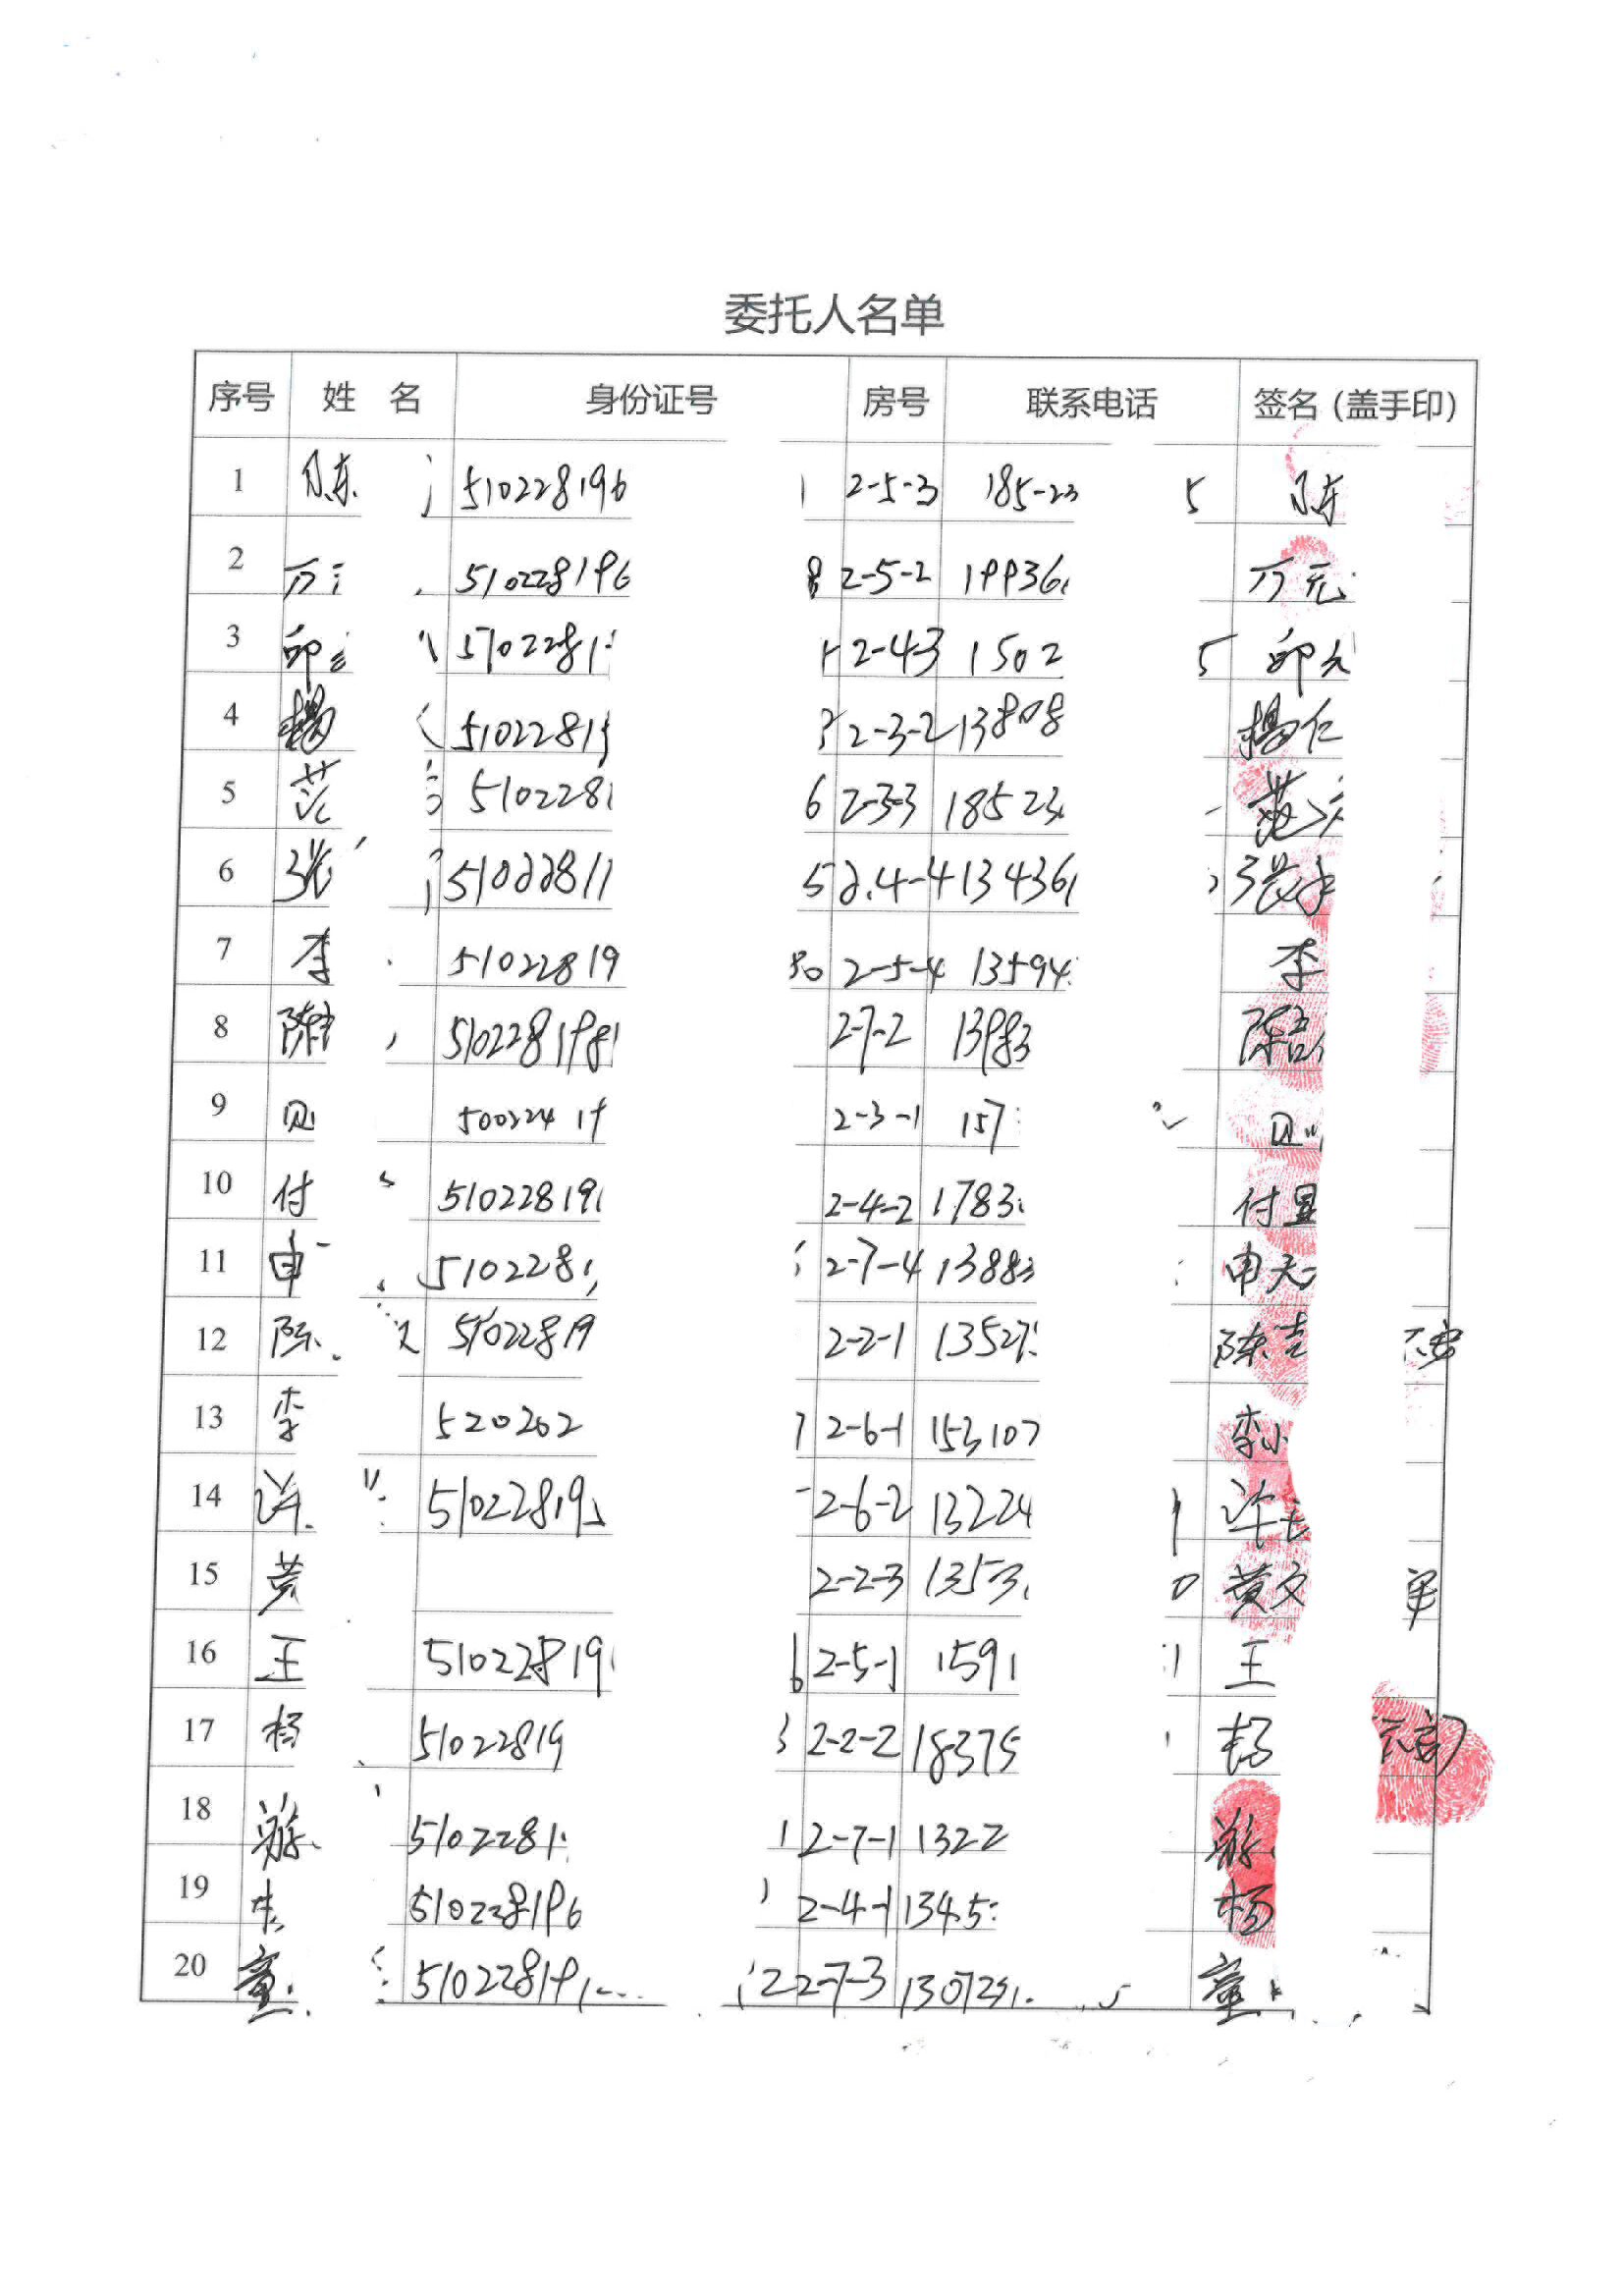 委托人名单
序号 姓 名 身份证号 房号 联系电话 签名（盖手印）
1 陈 510228196 1 2-5-3 185-23 5 陈
2 万 510228196 8 2-5-2 19936 万元
3 邱 5102281 2-4-3 1502 5 邱
4 杨 5102281 2-3-2 13808 杨仁
5 范 510228 6 2-3-3 18523 范
6 张 5102281 5 2.4-4 13436 张
7 李 51022819 80 2-5-4 13594 李
8 陈 510228198 2-7-2 13983 陈
9 500224 19 2-3-1 157
10 付 51022819 2-4-2 1783 付显
11 申 510228 2-7-4 13883 申天
12 陈 51022819 2-2-1 13527 陈吉
13 李 520202 7 2-6-1 153107 李小
14 许 51022819 2-6-2 13224 1 许
15 黄 2-2-3 1353 0 黄文 军
16 王 51022819 6 2-5-1 1591 1 王
17 杨 51022819 3 2-2-2 18375 杨
18 游 5102281 1 2-7-1 1322 游
19 510228196 2-4-1 1345 杨
20 童 510228191 2 2-7-3 130729 童